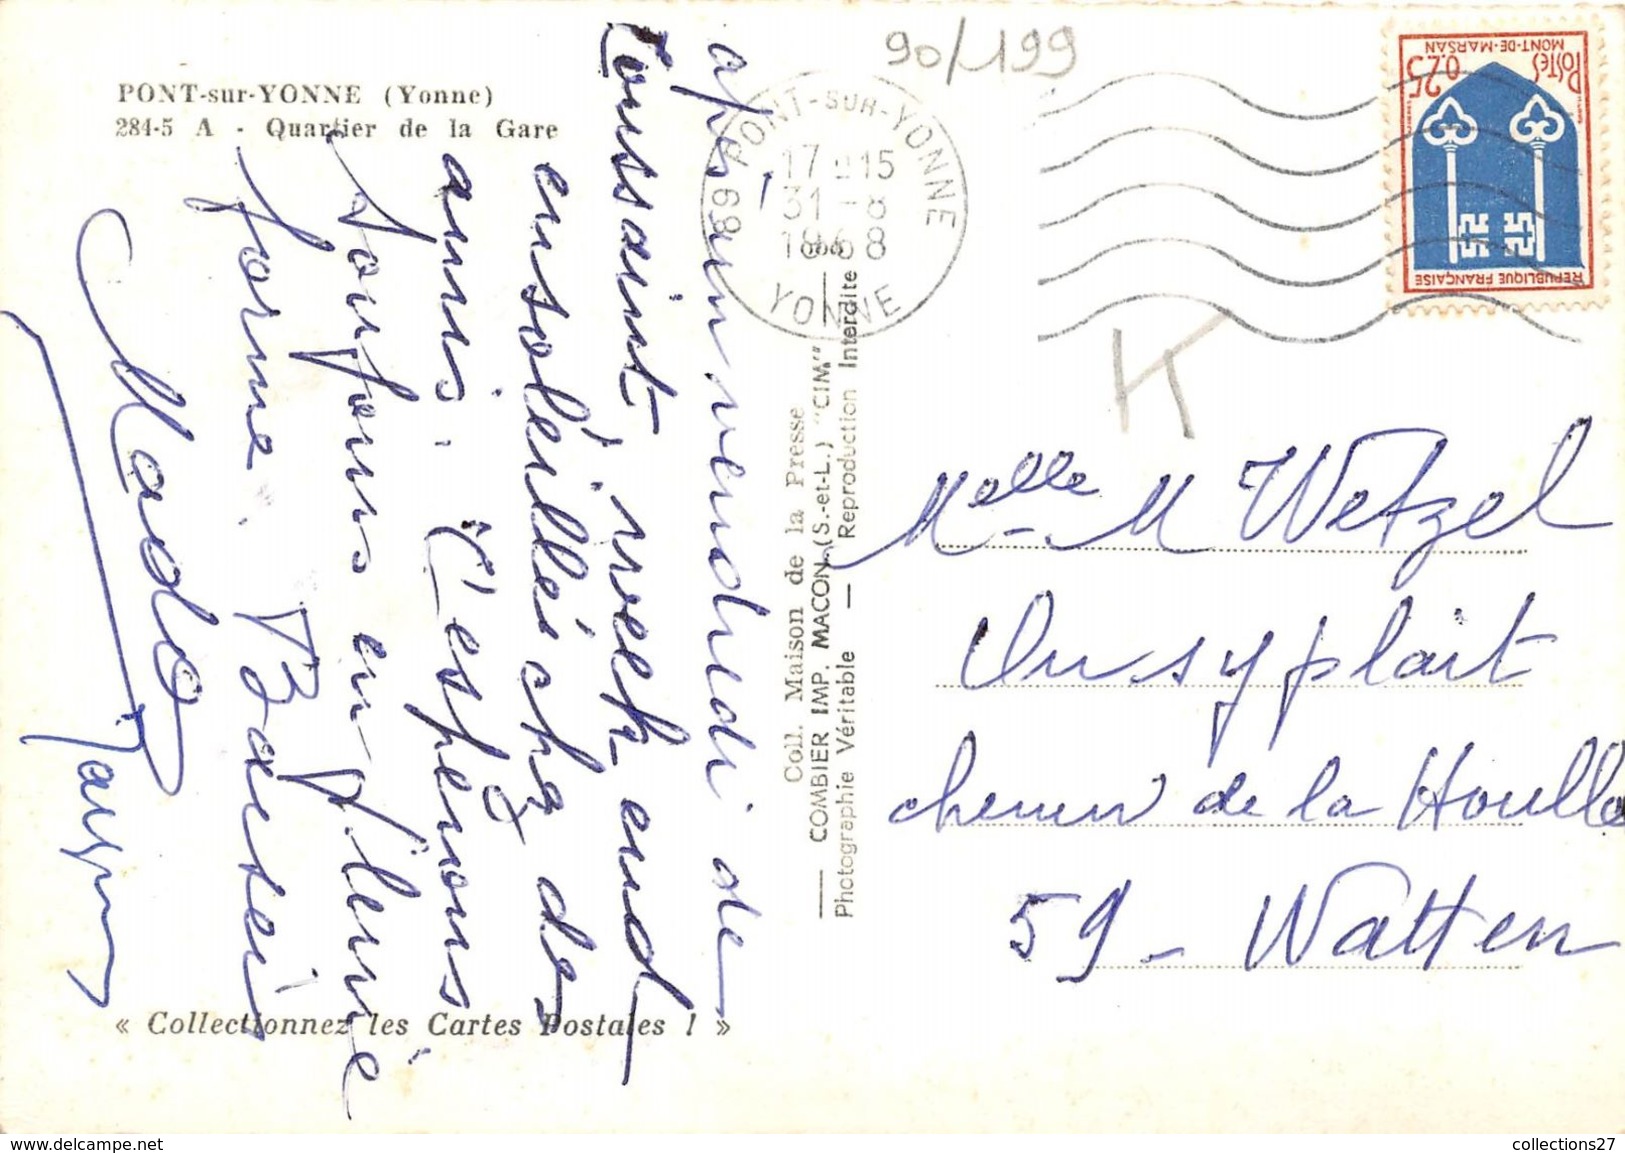 90/199
PONT-sur-YONNE (Yonne)
284-5 A - Quartier de la Gare
PONT-SUR-YONNE
17-15
31-8
1968
YONNE
89
POSTES
0.25
MONT-DE-MARSAN
REPUBLIQUE FRANÇAISE
K
vendredi de
Toussaint, week end
ensoleillés chez des
amis. J'espérons
toujours en pleine
forme. Baisers
Mado
Coll. Maison de la Presse
— COMBIER IMP. MACON (S.-et-L.) "CIM"
Photographie Véritable — Reproduction Interdite
Melle M Wetzel
chemin de la Houlle
59 - Watten
« Collectionnez les Cartes Postales ! »
https://www.delcampe.net
collections27